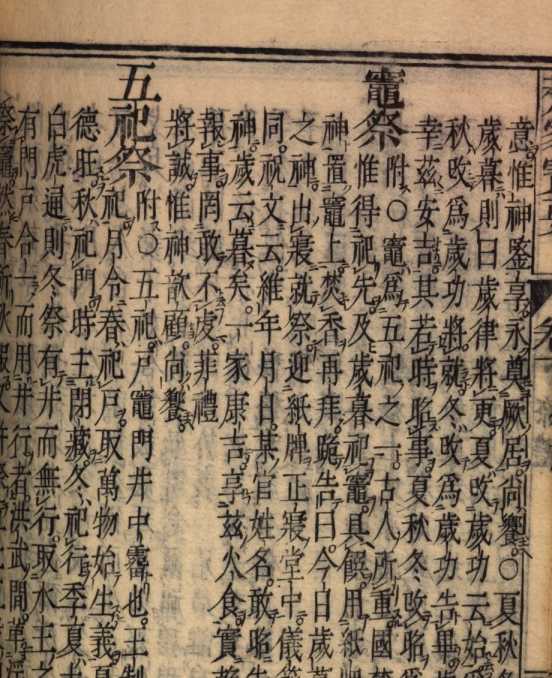 意惟神鑒享永奠厥居尚饗○夏秋
歲暮則曰歲律將更夏改歲功云始
秋改爲歲功將就冬改爲歲功告畢
幸茲安吉其若時昭事夏秋冬改昭
竈祭附○竈爲五祀之一古人所重國
惟得祀先及歲暮祀竈具饌用紙
神置竈上焚香再拜跪告曰今日歲
之神出寢就祭迎紙牌正寢堂中儀
同祝文云維年月日某官姓名敢昭
神歲云暮矣一家康吉享茲火食實
報事罔敢不虔菲禮
將誠惟神歆顧尚饗
五祀祭附○五祀戸竈門井中霤也王制
祀月令春祀戸取萬物始生義夏
德旺秋祀門時主閉藏冬祀行季夏
白虎通則冬祭有井而無行取水主之
有門戸合一而用井行者洪武間